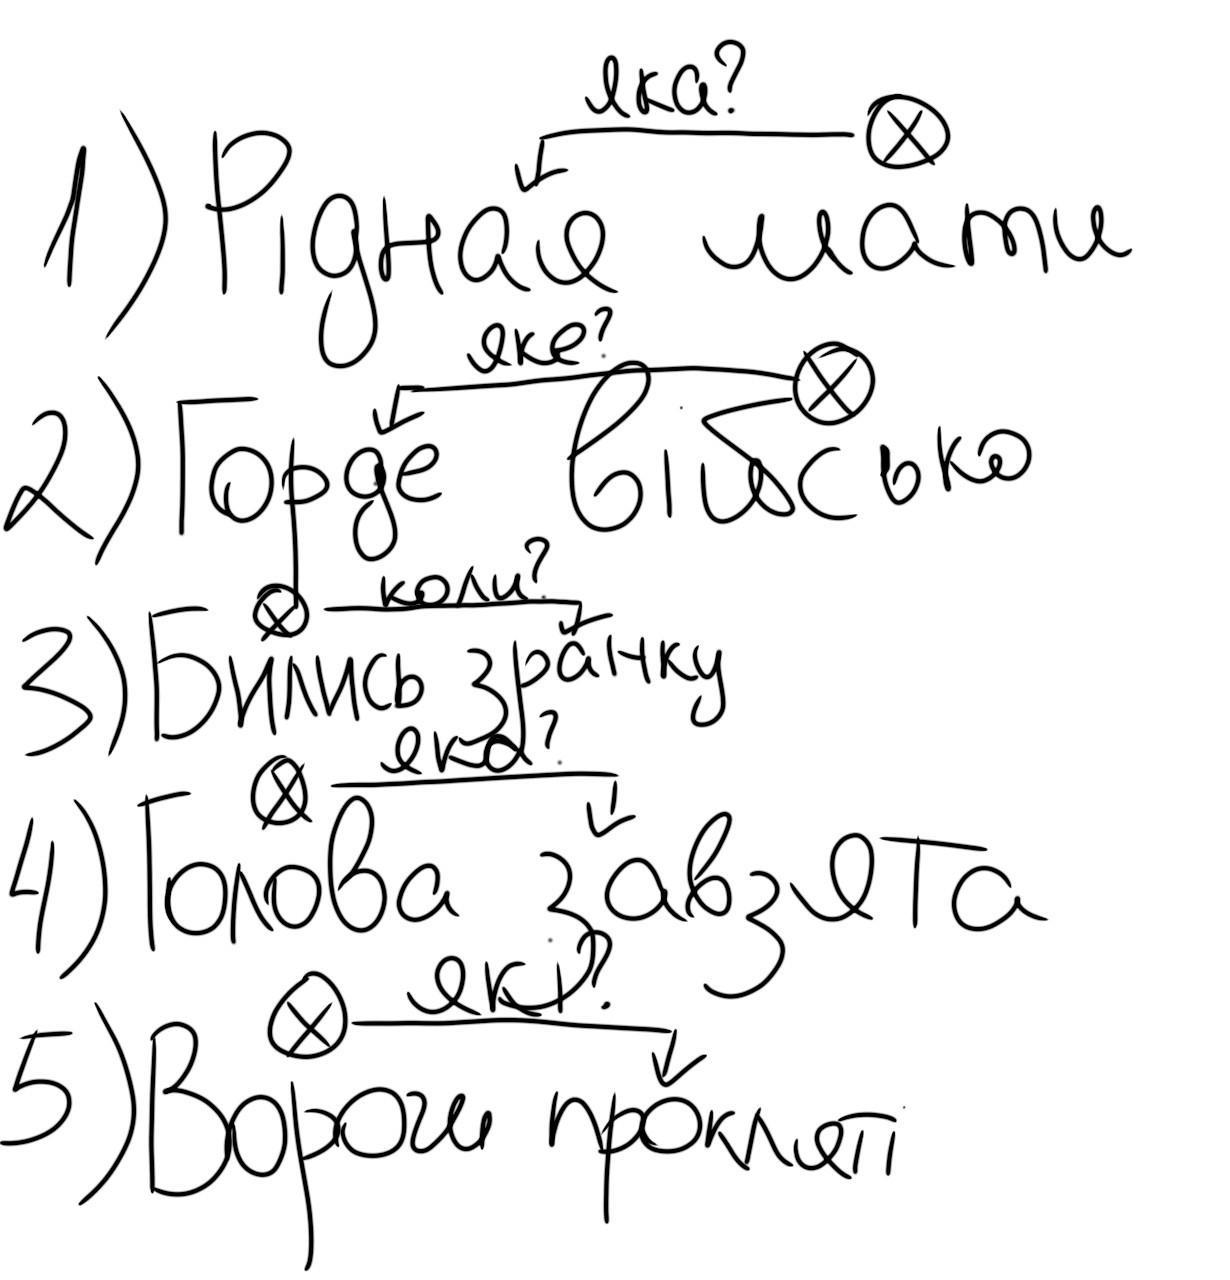 яка?
1) Рідная мати
яке?
2) Горде військо
коли?
3) Бились зранку
яка?
4) Голова завзята
які?
5) Вороги прокляті